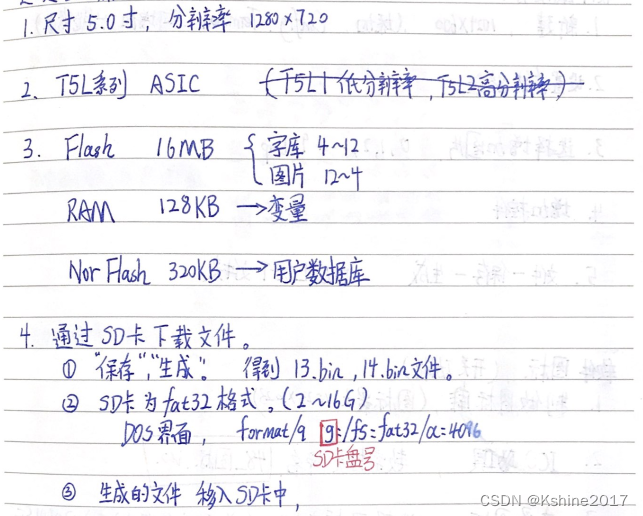 1. 尺寸 5.0寸, 分辨率 1280×720
2. T5L系列 ASIC (T5L1低分辨率, T5L2高分辨率)
3. Flash 16MB { 字库 4~12
图片 12~4
RAM 128KB → 变量
Nor Flash 320KB → 用户数据库
4. 通过SD卡下载文件。
① "保存","生成"。 得到 13.bin, 14.bin文件。
② SD卡为fat32格式, (2~16G)
DOS界面, format/q g:/fs=fat32/a=4096
SD卡盘号
③ 生成的文件 移入SD卡中,
CSDN @Kshine2017